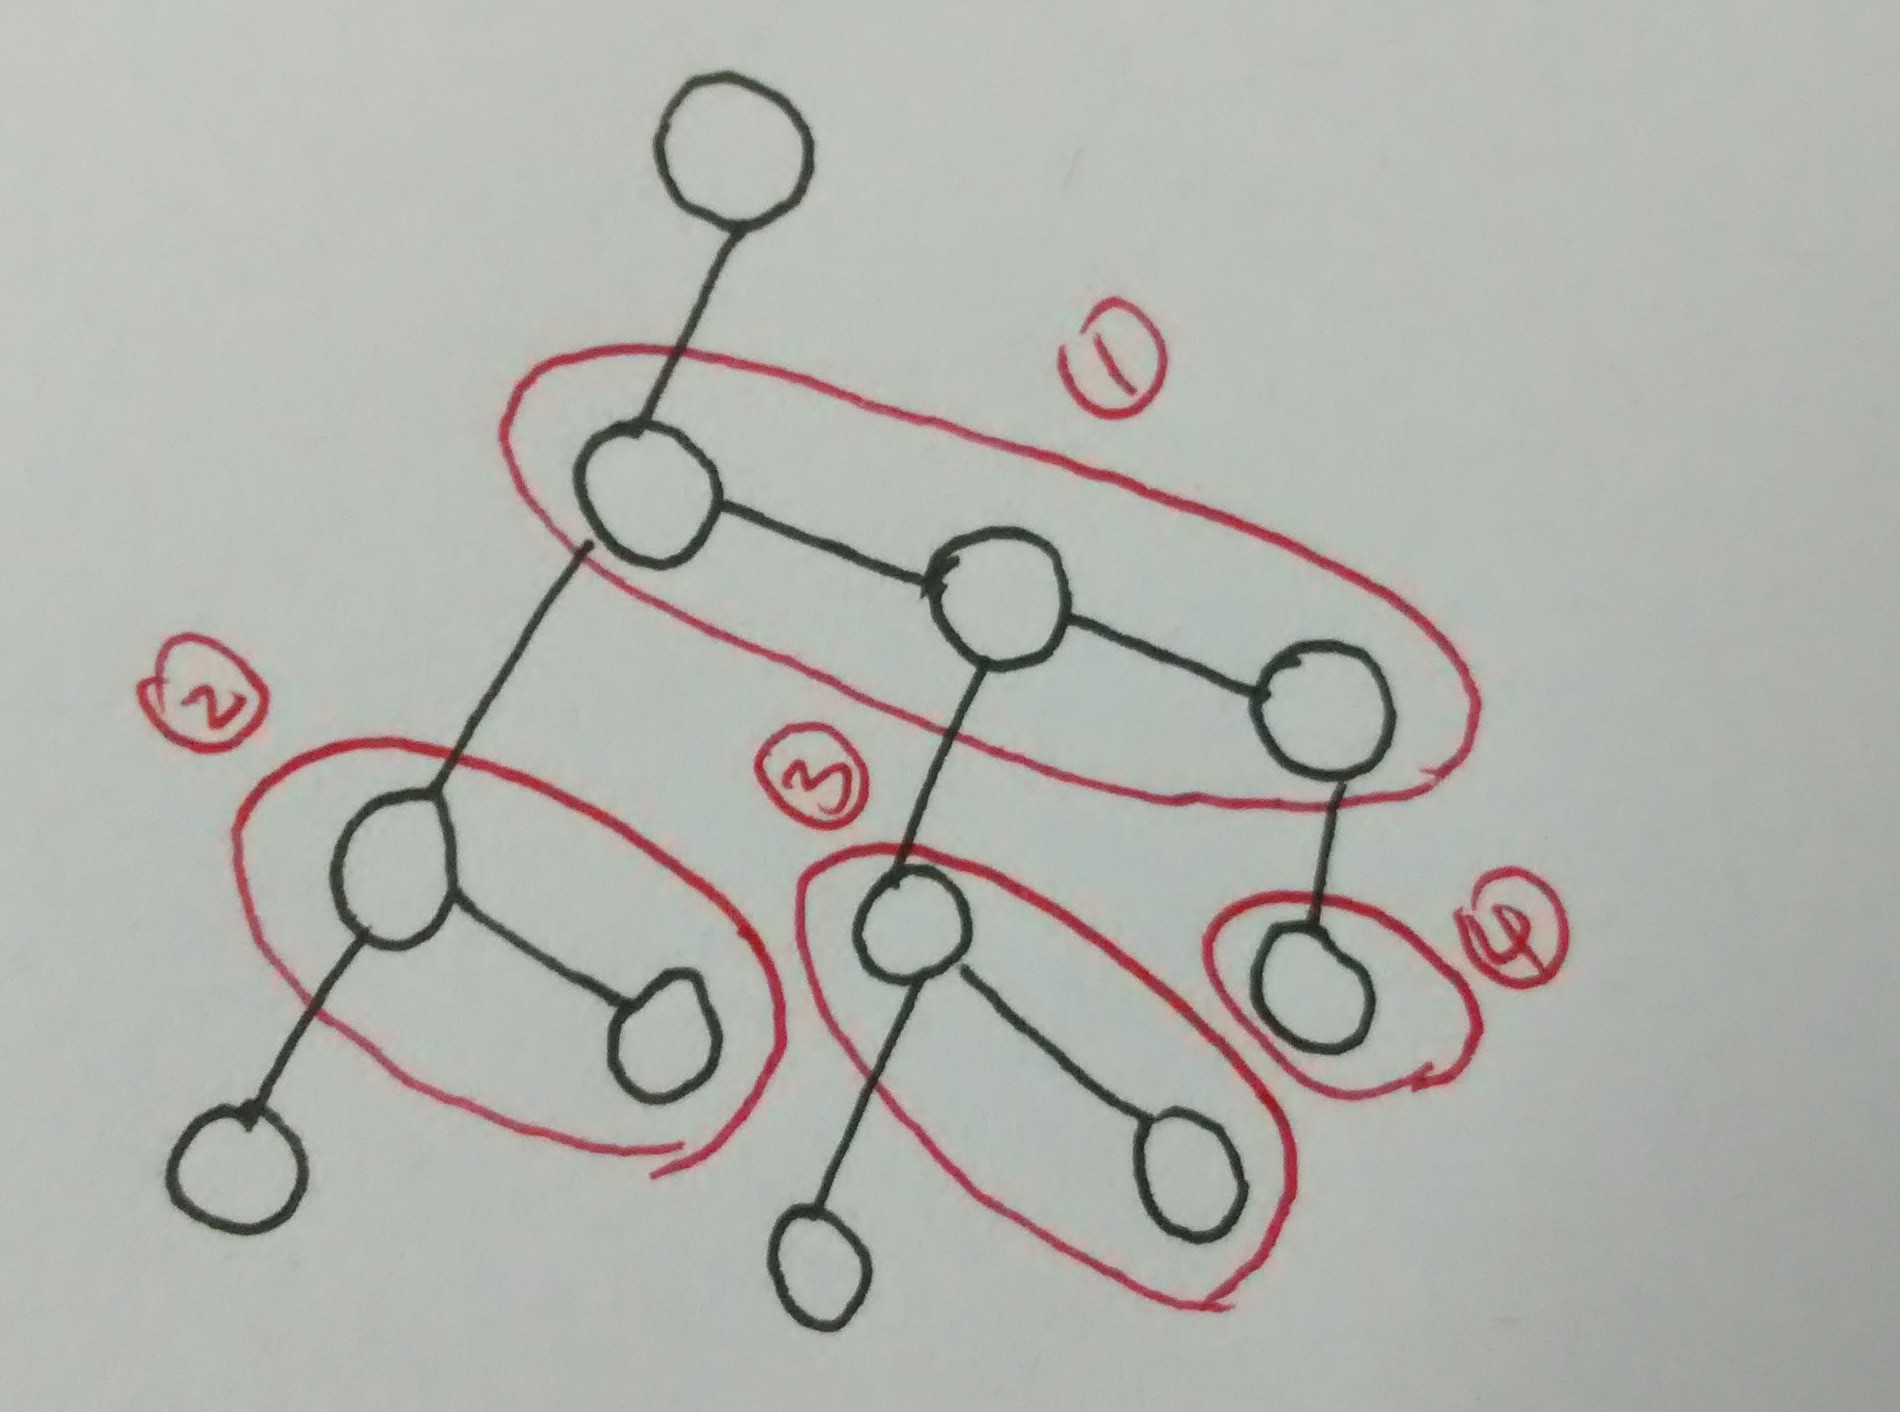 ①
②
③
④